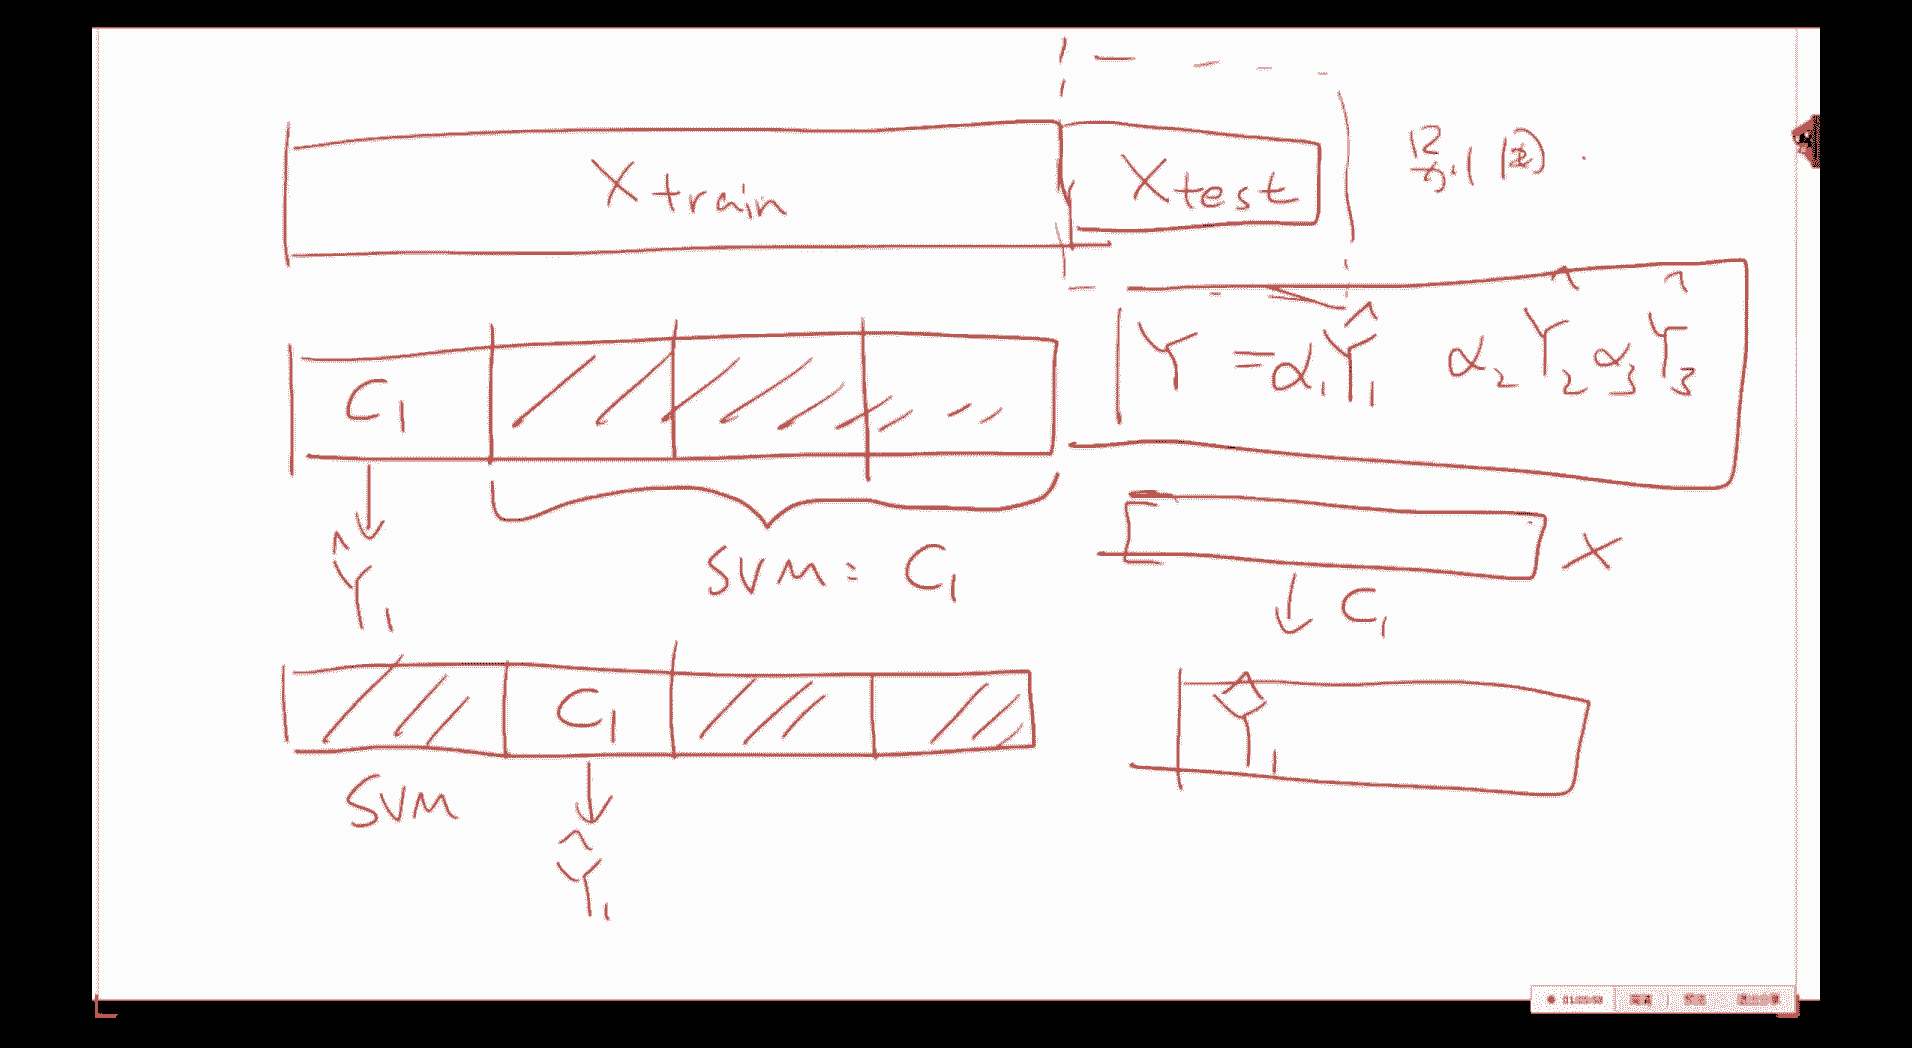 X train
X test
Y = α₁Ŷ₁ α₂Ŷ₂ α₃Ŷ₃
C₁
SVM: C₁
X
Ŷ₁
C₁
C₁
Ŷ₁
SVM
Ŷ₁